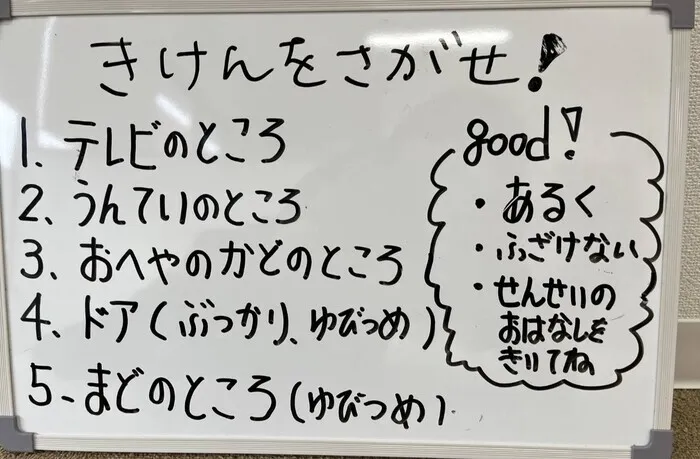 きけんをさがせ!
1、テレビのところ
2、うんていのところ
3、おへやのかどのところ
4、ドア(ぶつかり、ゆびつめ)
5、まどのところ(ゆびつめ)
good!
・あるく
・ふざけない
・せんせいの
おはなしを
きいてね